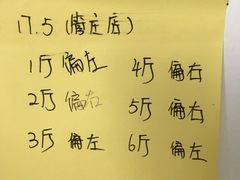 17.5（窑庄店）
1斤 偏左 4斤 偏右
2斤 偏右 5斤 偏右
3斤 偏左 6斤 偏左